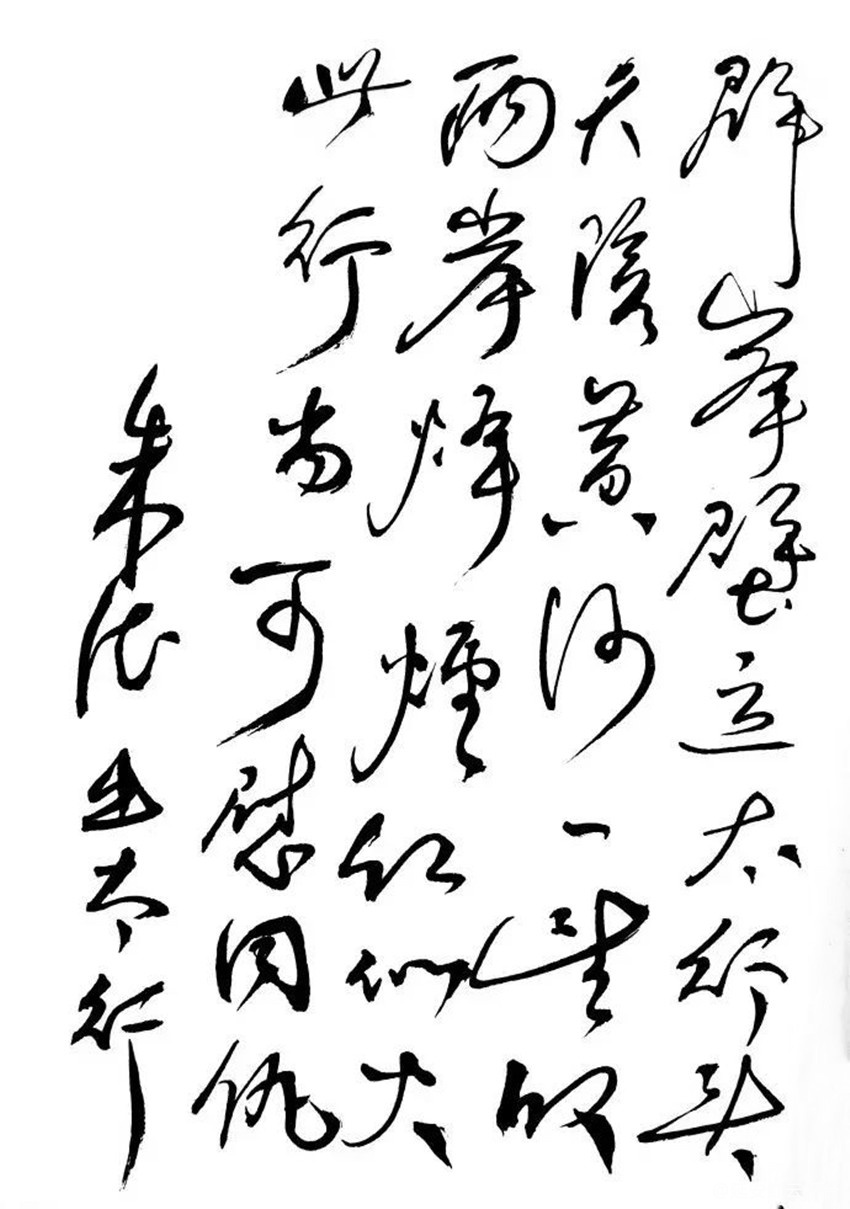 群峯壁立太行头
天险黄河一望收
两岸烽煙红似火
此行当可慰同仇
朱德出太行